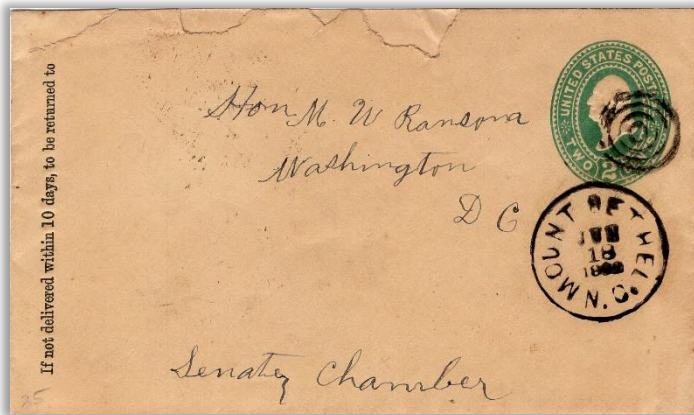 If not delivered within 10 days, to be returned to
UNITED STATES POST
TWO 2
Hon M. W Ransom
Washington
D C
MOUNT BETHEL. N.C.
JUN
18
Senate Chamber
25